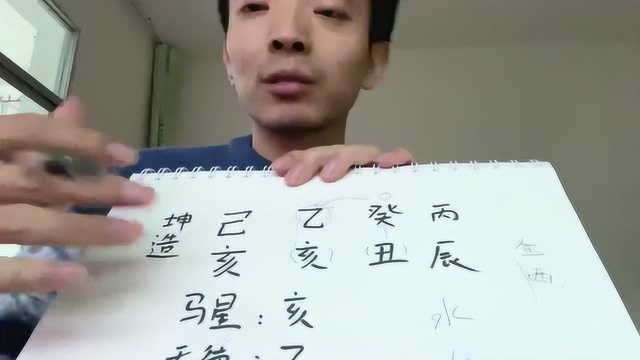 坤造 己 乙 癸 丙
亥 亥 丑 辰
金
酉
马星：亥 水
天德：乙